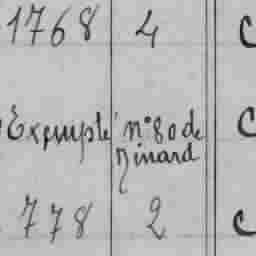 1768 4 C
Exemple n° 80 de C
Ninard
778 2 C